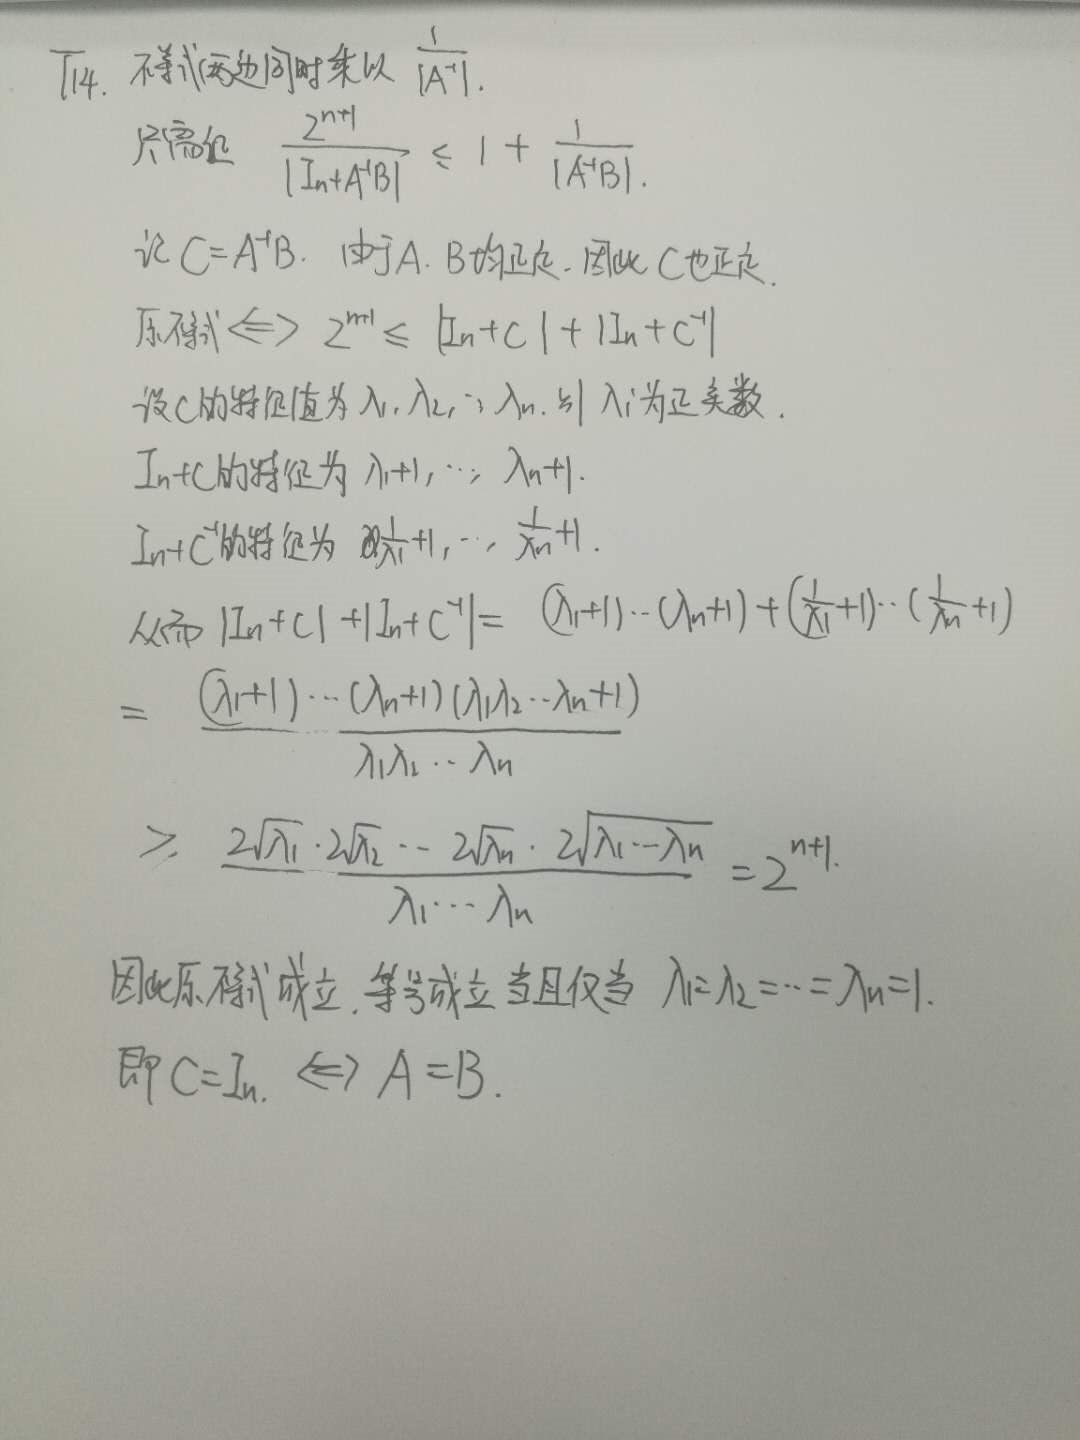 T14. 不等式两边同时乘以 1/|A⁻¹|.
只需证 2ⁿ⁺¹/|Iₙ+A⁻¹B| ≤ 1 + 1/|A⁻¹B|.
记 C=A⁻¹B. 由于A. B均正定. 因此 C也正定.
原不等式 <=> 2ⁿ⁺¹ ≤ |Iₙ+C|+|Iₙ+C⁻¹|
设C的特征值为 λ₁, λ₂, ..., λₙ. 则 λᵢ为正实数.
Iₙ+C的特征为 λ₁+1, ..., λₙ+1.
Iₙ+C⁻¹的特征为 1/λ₁+1, ..., 1/λₙ+1.
从而 |Iₙ+C|+|Iₙ+C⁻¹| = (λ₁+1)...(λₙ+1)+(1/λ₁+1)...(1/λₙ+1)
= (λ₁+1)...(λₙ+1)(λ₁λ₂...λₙ+1)/λ₁λ₂...λₙ
≥ 2√λ₁·2√λ₂...2√λₙ·2√(λ₁...λₙ)/λ₁...λₙ = 2ⁿ⁺¹.
因此原不等式成立. 等号成立当且仅当 λ₁=λ₂=...=λₙ=1.
即 C=Iₙ. <=> A=B.